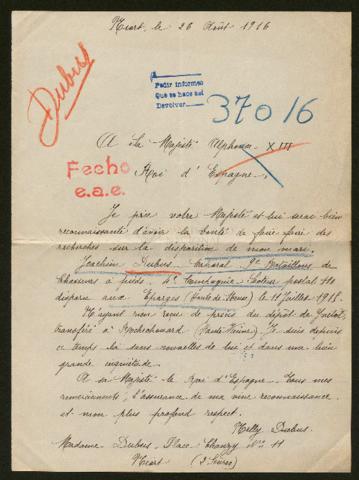 Niort, le 26 Août 1916
Dubus
Pedir informes
Que se hace así
Devolver
37016
A Sa Majesté Alphonse XIII
Roi d'Espagne,
Fecho
e.a.e.
Je prie votre Majesté et lui serai bien
reconnaissante d'avoir la bonté de faire faire des
recherches sur la disparition de mon mari,
Joachim Dubus, Caporal 9e Bataillons de
Chasseurs à pieds, 4e Compagnie, Secteur postal 110
disparu aux Eparges (Hauts de Meuse) le 11 Juillet 1915.
N'ayant rien reçu de précis du dépôt de
transféré à Rochechouard (Haute Vienne). Je suis depuis
ce temps là sans nouvelles de lui et dans une bien
grande inquiétude.
A sa Majesté le Roi d'Espagne. Tous mes
remerciements, l'assurance de ma vive reconnaissance
et mon plus profond respect.
Nelly Dubus
Madame Dubus, Place Chanzy No 11
Niort (2 Sèvres)